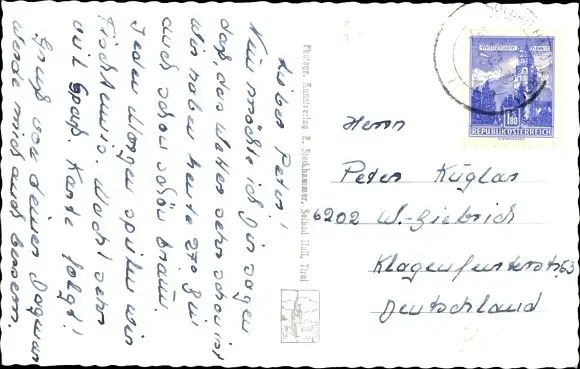 Lieber Peter!
Nun möchte ich Dir sagen
daß das Wetter sehr schön ist
Wir haben heute 27° Wir
auch schon schön braun.
Jeden Morgen spielen wir
Tischtennis. Macht sehr
viel Spaß. Karte folgt!
Gruß von deiner Dagmar
werde mich auch bessern.
Photogr. Kunstverlag E. Stockhammer, Solbad Hall, Tirol
SOLBAD HA
MÜNZTURM
1.80
REPUBLIK ÖSTERREICH
Herrn
Peter Küglar
6202 W.-Biebrich
Klagenfurterstr. 63
Deutschland